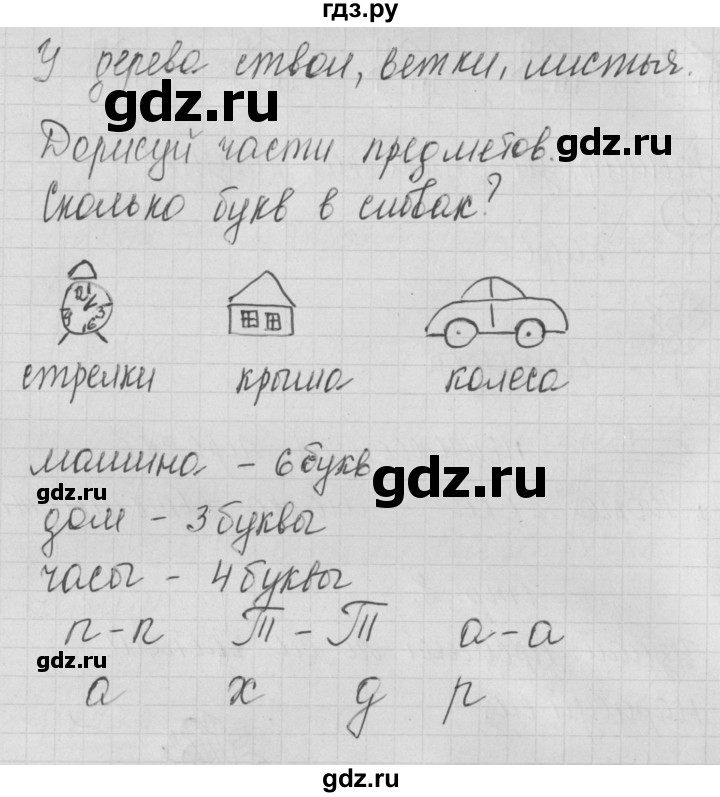 гдз.ру
У дерева ствол, ветки, листья.
gdz.ru
Дорисуй части предметов.
gdz.ru
Сколько букв в словах?
стрелки крыша колеса
машина - 6 букв
gdz.ru
gdz.ru
дом - 3 буквы
часы - 4 буквы
п-п Т-Т а-а
gdz.ru
а х д р
gdz.ru